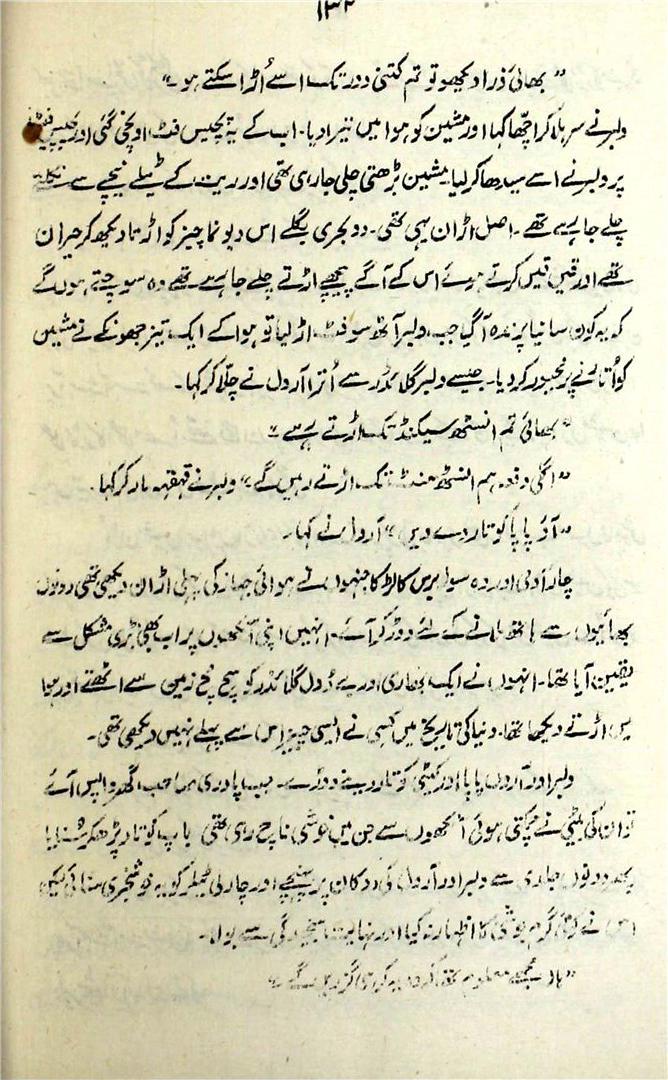 ۱۳۲
” بھائی ذرا دیکھو تو تم کتنی دور تک اسے اُڑا سکتے ہو ۔“
ولبر نے سر ہلا کر اچھا کہا اور مشین کو ہوا میں تیرا دیا۔ اب کے یہ پچیس فٹ اونچی گئی اور پچیس فٹ
پر ولبر نے اسے سیدھا کر لیا مشین بڑھتی چلی جا رہی تھی اور ریت کے ٹیلے نیچے سے نکلتے
چلے جا رہے تھے ۔ اصل اڑان یہی تھی۔ دو بحری بگلے اس دیو نما چیز کو اڑتا دیکھ کر حیران
تھے اور قیں قیں کرتے ہوئے اس کے آگے پیچھے اڑتے چلے جا رہے تھے وہ سوچتے ہوں گے
کہ یہ کون سا نیا پرندہ آ گیا جب ولبر آٹھ سو فٹ اڑ لیا تو ہوا کے ایک تیز جھونکے نے مشین
کو اُتارنے پر مجبور کر دیا۔ جیسے ولبر گلائڈر سے اُترا آرول نے چلّا کر کہا۔
”بھائی تم انسٹھ سیکنڈ تک اڑتے رہے“
”اگلی دفعہ ہم انسٹھ منٹ تک اڑتے رہیں گے“ ولبر نے قہقہہ مار کر کہا۔
”آؤ پاپا کو تار دے دیں“ آرول نے کہا۔
چار آدمی اور دہ سولہ برس کا لڑکا جنہوں نے ہوائی جہاز کی پہلی اڑان دیکھی تھی دونوں
بھائیوں سے ہاتھ ملانے کے لئے دوڑ کر آئے۔ انہیں اپنی آنکھوں پر اب بھی بڑی مشکل سے
یقین آیا تھا۔ انہوں نے ایک بھاری اور بے ڈول گلائڈر کو سچ مچ زمین سے اٹھتے اور ہوا
میں اڑتے دیکھا تھا۔ دنیا کی تاریخ میں کسی نے ایسی چیز اس سے پہلے نہیں دیکھی تھی۔
ولبر اور آرول پاپا اور کیٹی کو تار دینے دوڑے۔ جب پادری صاحب گھر واپس آئے
تو ان کی بیٹی نے چمکتی ہوئی آنکھوں سے جن میں خوشی ناچ رہی تھی باپ کو تار پڑھ کر سنایا
پھر دونوں جلدی سے ولبر اور آرول کی دوکان پر پہنچے اور چارلی ٹیلر کو یہ خوشخبری سنائی لیکن
اس نے گرم جوشی کا اظہار نہ کیا اور نہایت سنجیدگی سے بولا۔
مجھے معلوم تھا کہ وہ یہ کر ہی گزریں گے“